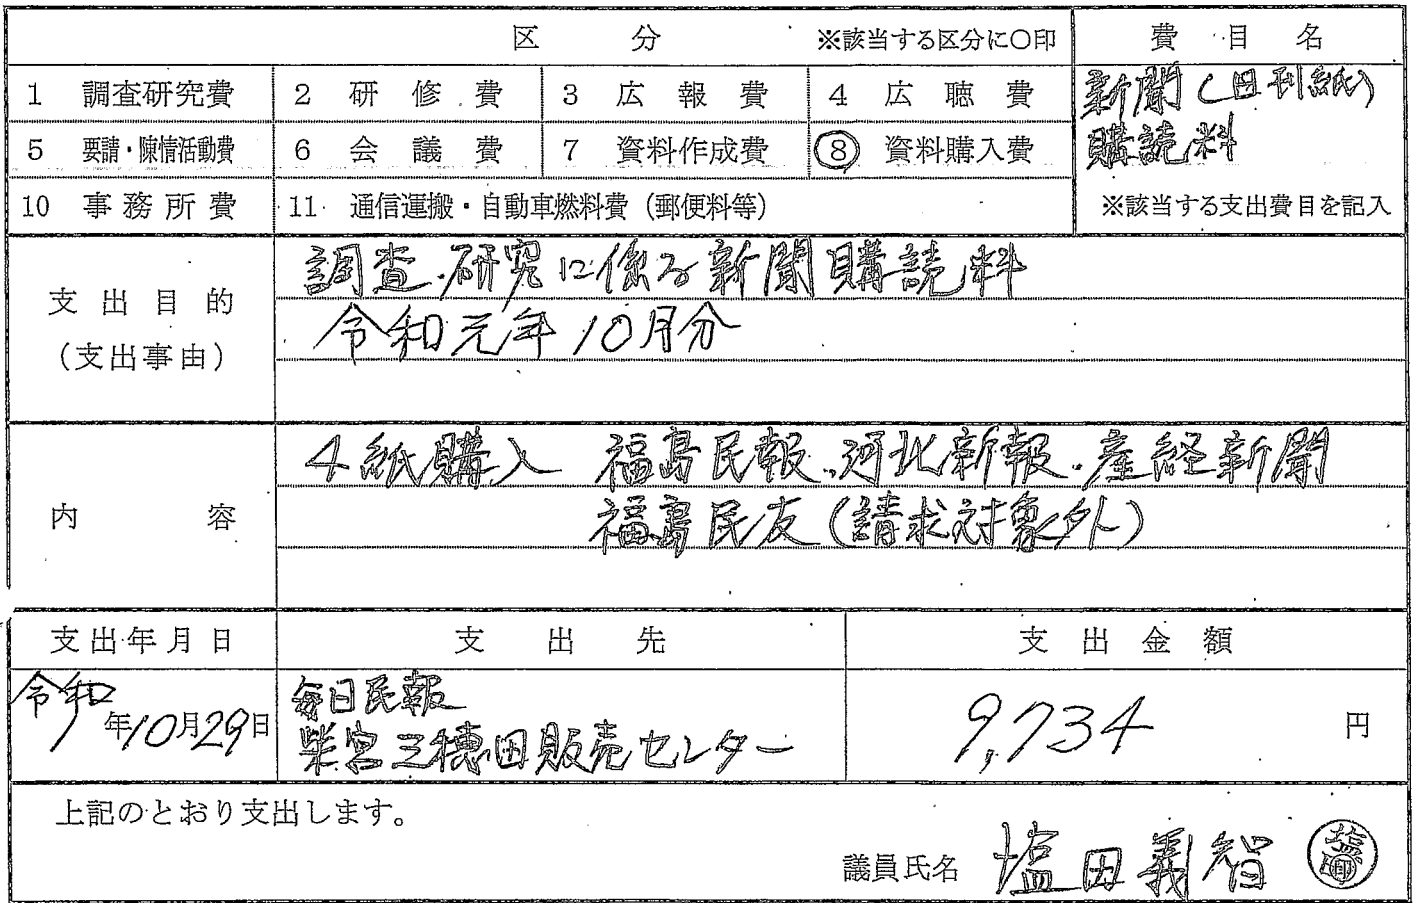 区 分 ※該当する区分に○印 費目名
1 調査研究費 2 研修費 3 広報費 4 広聴費 新聞(日刊紙)
5 要請・陳情活動費 6 会議費 7 資料作成費 8 資料購入費 購読料
10 事務所費 11 通信運搬・自動車燃料費(郵便料等) ※該当する支出費目を記入
支出目的
(支出事由)
調査研究に係る新聞購読料
令和元年10月分
内容
4紙購入 福島民報、河北新報、産経新聞
福島民友(請求対象外)
支出年月日 支出先 支出金額
令和1年10月29日
毎日民報
柴宮三穂田販売センター
9,734円
上記のとおり支出します。
議員氏名 塩田義智 塩田